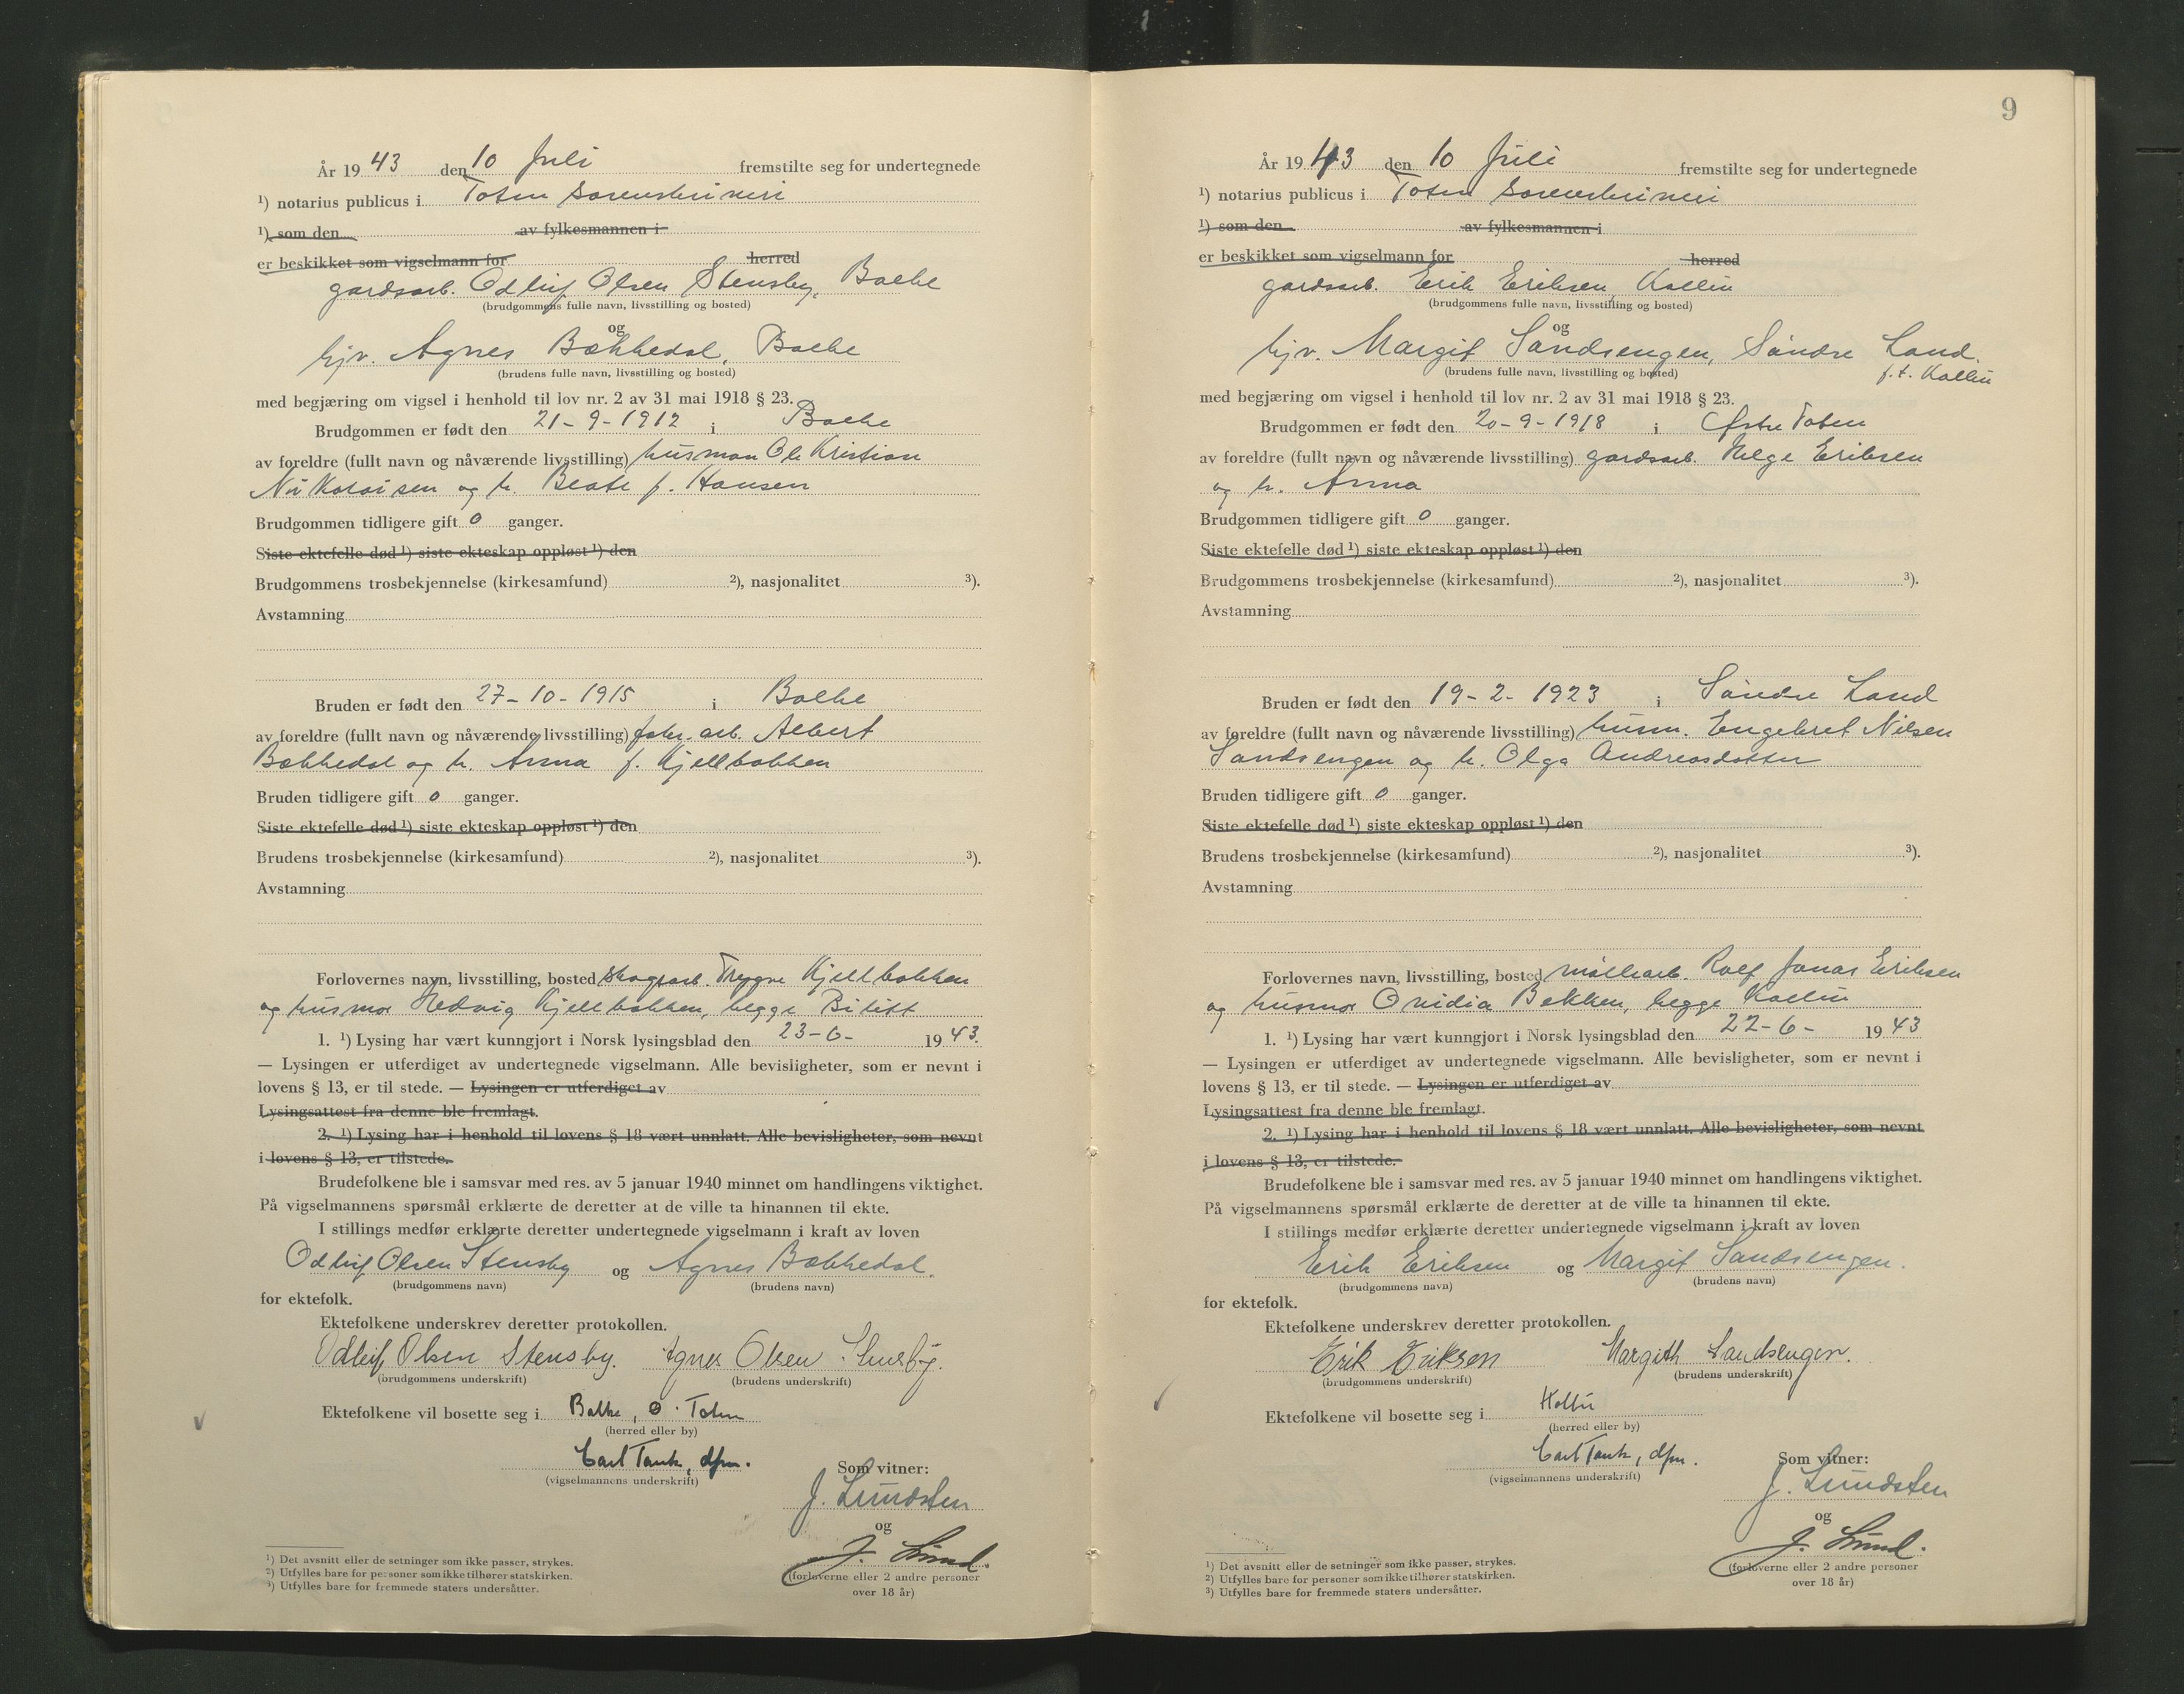 År 1943 den 10 Juli fremstilte seg for undertegnede
¹) notarius publicus i Toten sorenskriveri
¹) som den av fylkesmannen i
er beskikket som vigselmann for herred
gardsarb. Odleif Olsen Stensby, Balke
(brudgommens fulle navn, livsstilling og bosted)
og
hjv. Agnes Bækkedal, Balke
(brudens fulle navn, livsstilling og bosted)
med begjæring om vigsel i henhold til lov nr. 2 av 31 mai 1918 § 23.
Brudgommen er født den 21-9-1912 i Balke
av foreldre (fullt navn og nåværende livsstilling) husman Ole Kristian
Nikolaisen og h. Beate f. Hansen
Brudgommen tidligere gift 0 ganger.
Siste ektefelle død ¹) siste ekteskap oppløst ¹) den
Brudgommens trosbekjennelse (kirkesamfund) ²), nasjonalitet ³).
Avstamning
Bruden er født den 27-10-1915 i Balke
av foreldre (fullt navn og nåværende livsstilling) fabr. arb. Albert
Bækkedal og h. Anna f. Kjellbakken
Bruden tidligere gift 0 ganger.
Siste ektefelle død ¹) siste ekteskap oppløst ¹) den
Brudens trosbekjennelse (kirkesamfund) ²), nasjonalitet ³).
Avstamning
Forlovernes navn, livsstilling, bosted skogsarb. Trygve Kjellbakken
og husmor Hedvig Kjellbakken, begge Bilitt
1. ¹) Lysing har vært kunngjort i Norsk lysingsblad den 23-6- 1943.
— Lysingen er utferdiget av undertegnede vigselmann. Alle bevisligheter, som er nevnt i
lovens § 13, er til stede. — Lysingen er utferdiget av
Lysingsattest fra denne ble fremlagt.
2. ¹) Lysing har i henhold til lovens § 18 vært unnlatt. Alle bevisligheter, som nevnt
i lovens § 13, er tilstede.
Brudefolkene ble i samsvar med res. av 5 januar 1940 minnet om handlingens viktighet.
På vigselmannens spørsmål erklærte de deretter at de ville ta hinannen til ekte.
I stillings medfør erklærte deretter undertegnede vigselmann i kraft av loven
Odleif Olsen Stensby og Agnes Bækkedal.
(brudgommens navn) (brudens navn)
for ektefolk.
Ektefolkene underskrev deretter protokollen.
Odleif Olsen Stensby. Agnes Olsen Stensby.
(brudgommens underskrift) (brudens underskrift)
Ektefolkene vil bosette seg i Balke, Ø. Toten
(herred eller by)
Carl Tank, dfm.
(vigselmannens underskrift)
Som vitner:
J. Lundsten
og
J. Lund.
(forloverne eller 2 andre personer
over 18 år)
¹) Det avsnitt eller de setninger som ikke passer, strykes.
²) Utfylles bare for personer som ikke tilhører statskirken.
³) Utfylles bare for fremmede staters undersåtter.
9
År 1943 den 10 Juli fremstilte seg for undertegnede
¹) notarius publicus i Toten sorenskriveri
¹) som den av fylkesmannen i
er beskikket som vigselmann for herred
gardsarb. Erik Eriksen, Kolbu
(brudgommens fulle navn, livsstilling og bosted)
og
hjv. Margit Sandsengen, Søndre Land.
f.t. Kolbu
(brudens fulle navn, livsstilling og bosted)
med begjæring om vigsel i henhold til lov nr. 2 av 31 mai 1918 § 23.
Brudgommen er født den 20-9-1918 i Østre Toten
av foreldre (fullt navn og nåværende livsstilling) gardsarb. Helge Eriksen
og h. Anna
Brudgommen tidligere gift 0 ganger.
Siste ektefelle død ¹) siste ekteskap oppløst ¹) den
Brudgommens trosbekjennelse (kirkesamfund) ²), nasjonalitet ³).
Avstamning
Bruden er født den 19-2-1923 i Søndre Land
av foreldre (fullt navn og nåværende livsstilling) husm. Engebret Nilsen
Sandsengen og h. Olga Andreasdatter
Bruden tidligere gift 0 ganger.
Siste ektefelle død ¹) siste ekteskap oppløst ¹) den
Brudens trosbekjennelse (kirkesamfund) ²), nasjonalitet ³).
Avstamning
Forlovernes navn, livsstilling, bosted Rolf Jonas Eriksen
og husmor Ovidia Bekken, begge Kolbu
1. ¹) Lysing har vært kunngjort i Norsk lysingsblad den 22-6- 1943
— Lysingen er utferdiget av undertegnede vigselmann. Alle bevisligheter, som er nevnt i
lovens § 13, er til stede. — Lysingen er utferdiget av
Lysingsattest fra denne ble fremlagt.
2. ¹) Lysing har i henhold til lovens § 18 vært unnlatt. Alle bevisligheter, som nevnt
i lovens § 13, er tilstede.
Brudefolkene ble i samsvar med res. av 5 januar 1940 minnet om handlingens viktighet.
På vigselmannens spørsmål erklærte de deretter at de ville ta hinannen til ekte.
I stillings medfør erklærte deretter undertegnede vigselmann i kraft av loven
Erik Eriksen og Margit Sandsengen.
(brudgommens navn) (brudens navn)
for ektefolk.
Ektefolkene underskrev deretter protokollen.
Erik Eriksen Margith Sandsengen.
(brudgommens underskrift) (brudens underskrift)
Ektefolkene vil bosette seg i Kolbu
(herred eller by)
Carl Tank, dfm.
(vigselmannens underskrift)
Som vitner:
J. Lundsten
og
J. Lund.
(forloverne eller 2 andre personer
over 18 år)
¹) Det avsnitt eller de setninger som ikke passer, strykes.
²) Utfylles bare for personer som ikke tilhører statskirken.
³) Utfylles bare for fremmede staters undersåtter.